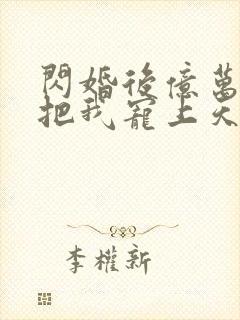 閃婚後億萬
把我寵上天
李權新